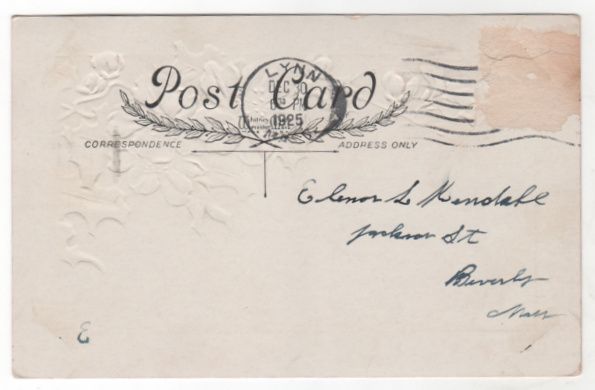 Post Card
LYNN
DEC 30
6 PM
1925
CORRESPONDENCE
ADDRESS ONLY
Elenor L Kendall
Jackson St
Beverly
Mass
E